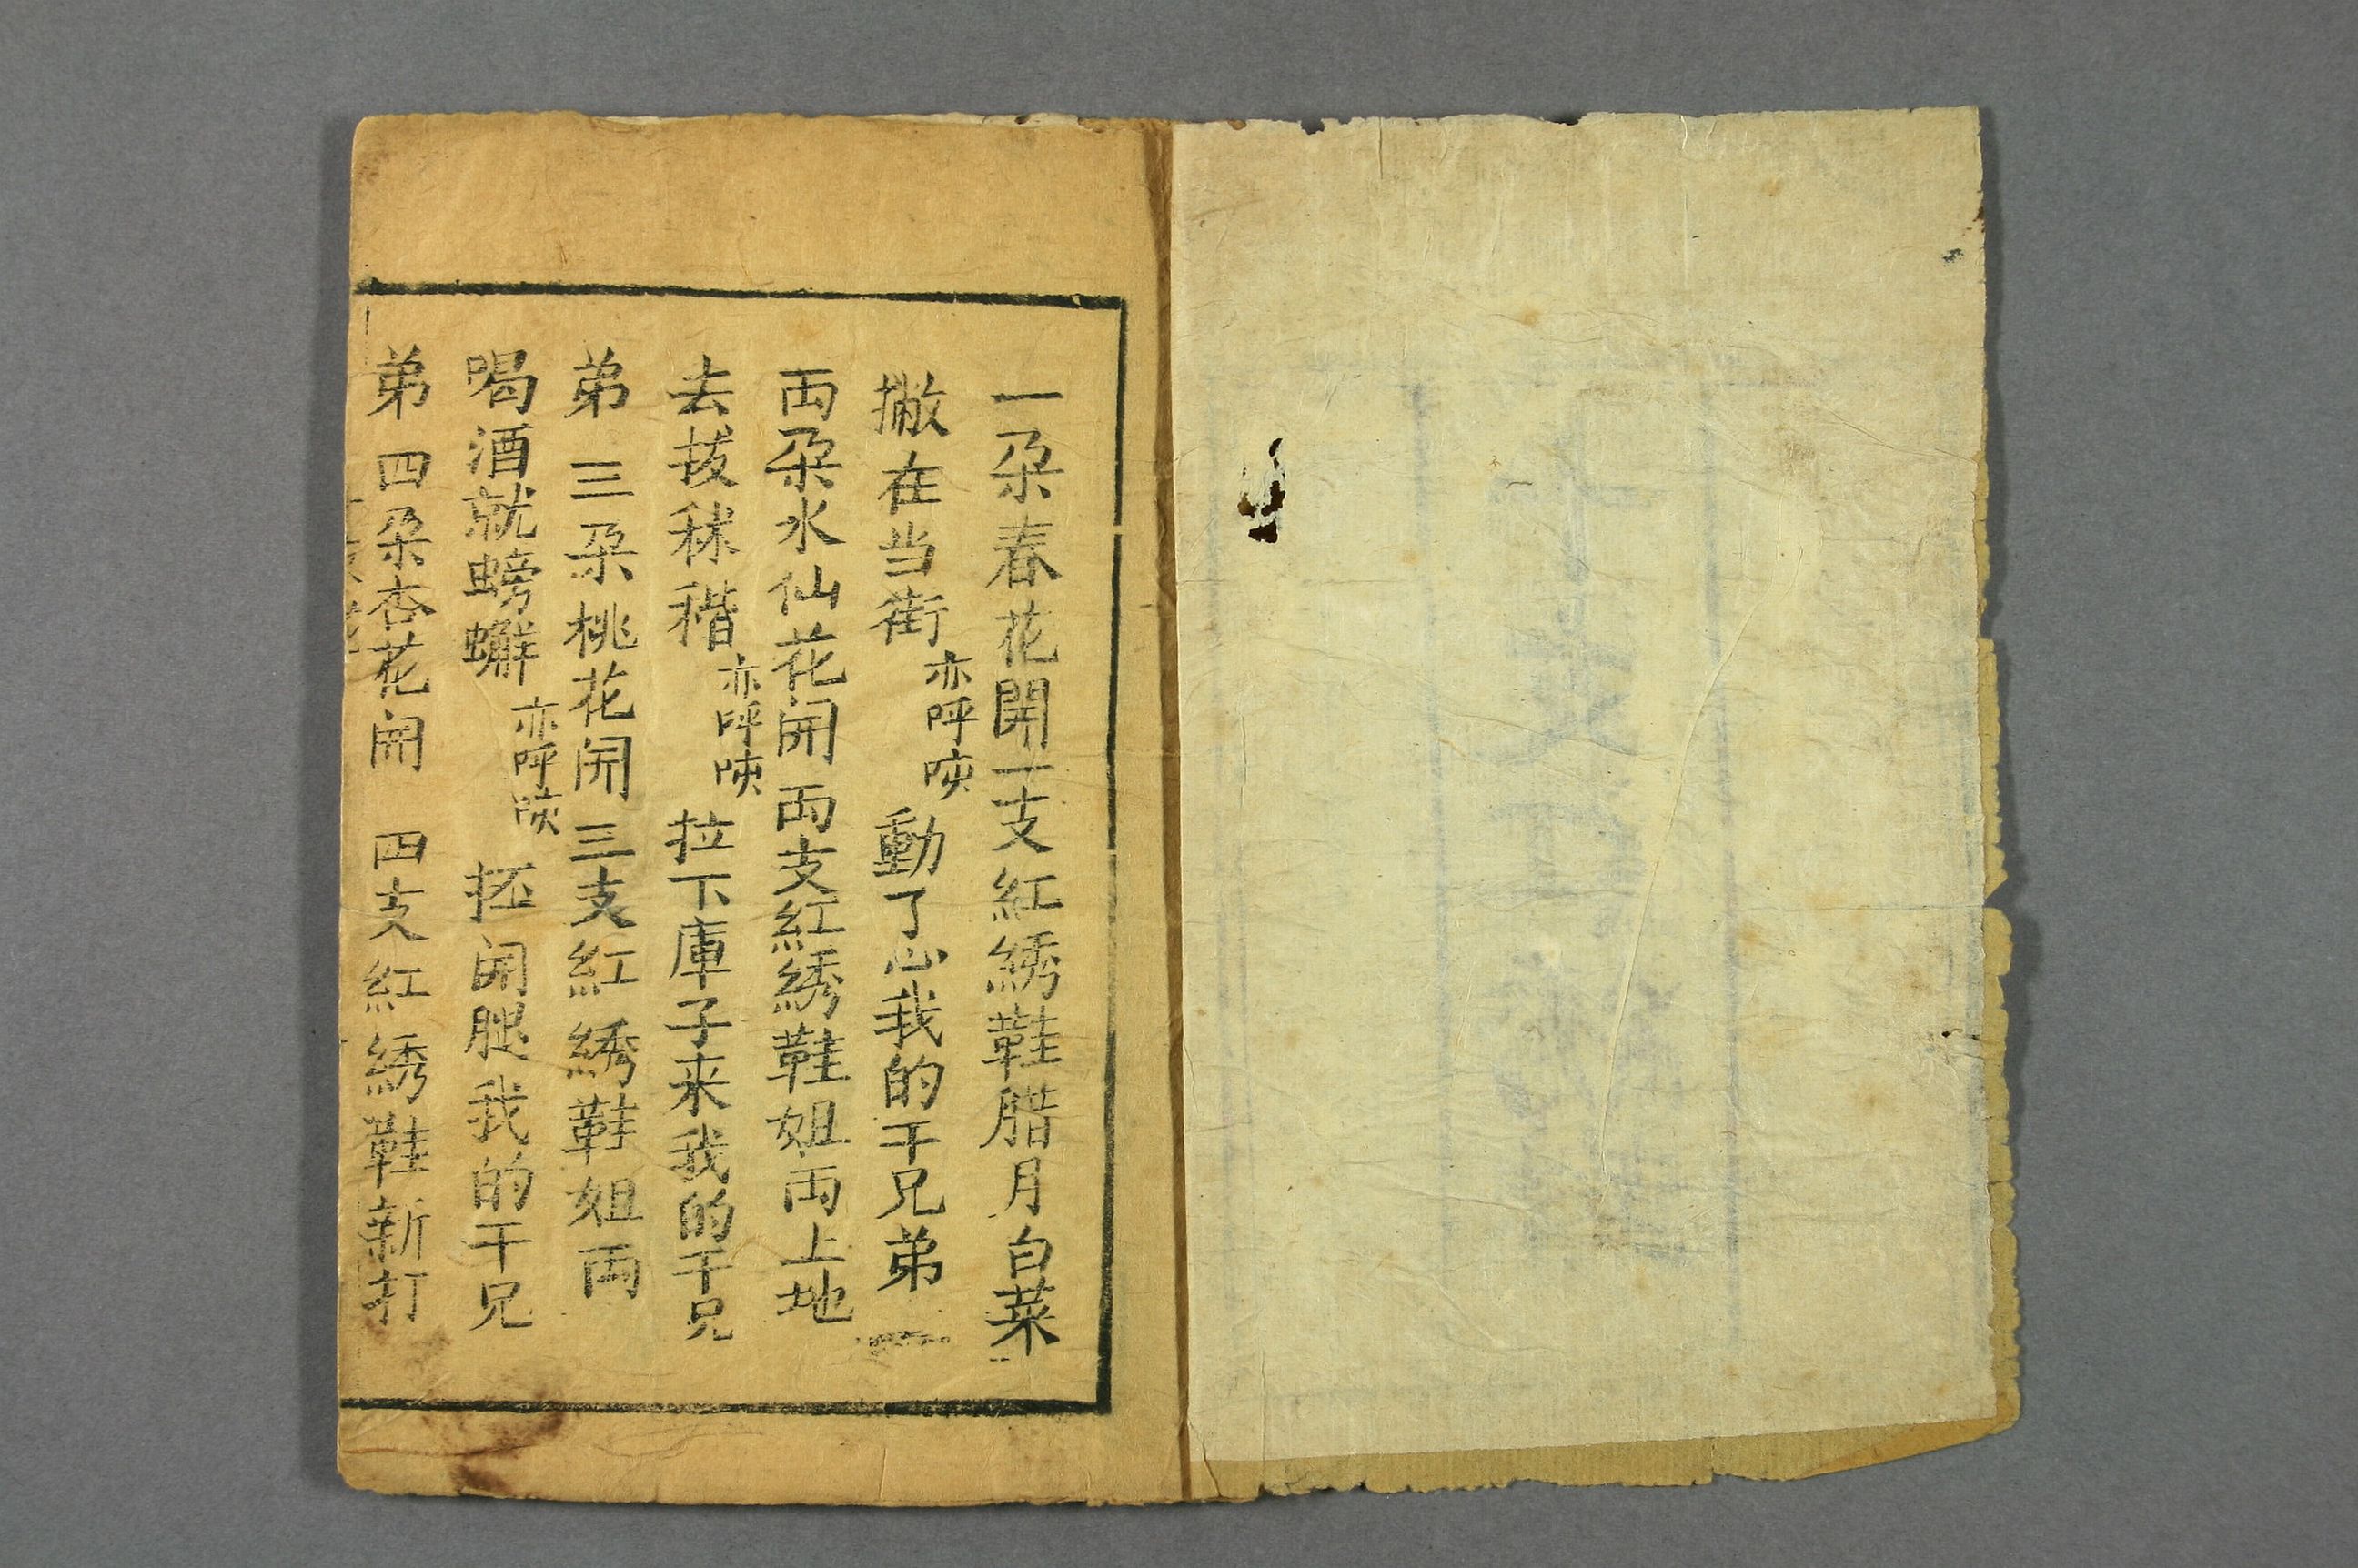 一朶春花開一支紅綉鞋腊月白菜
撇在当街亦呼咦動了心我的干兄弟
両朶水仙花開両支紅綉鞋姐両上地
去拔秫稭亦呼咦拉下庫子来我的干兄
弟三朶桃花開三支紅綉鞋姐両
喝酒就螃蠏亦呼咦抷開腿我的干兄
弟四朶杏花開四支紅綉鞋新打